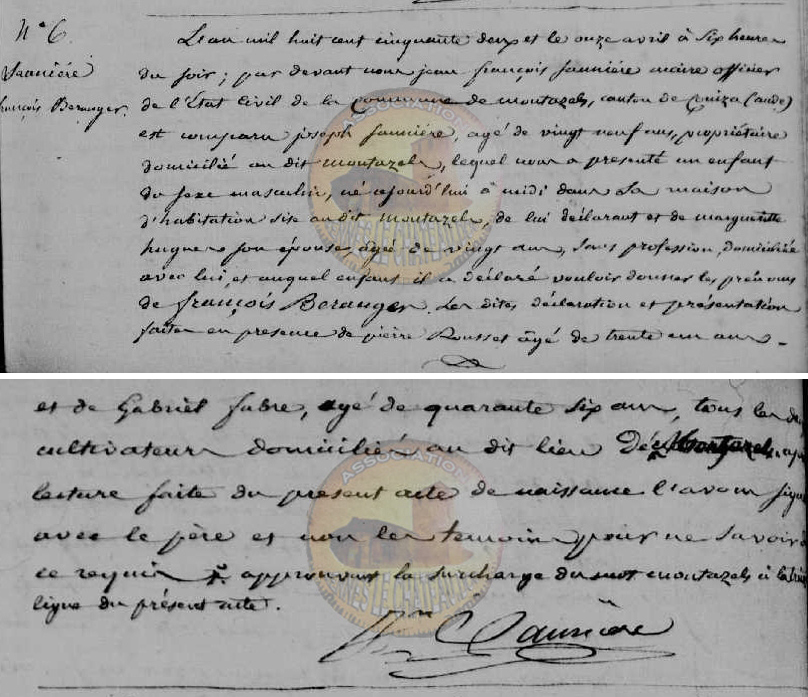 N° 6.
Saunière
françois Beranger.
L'an mil huit cent cinquante deux et le onze avril à six heures
du soir; par devant nous jean françois saunière maire officier
de l'État civil de la commune de montazels, canton de Couiza (aude)
est comparu joseph saunière, agé de vingt neuf ans, propriétaire
domicilié au dit montazels, lequel nous a presenté un enfant
du sexe masculin, né aujourd'hui à midi dans sa maison
d'habitation sise au dit montazels, de lui déclarant et de marguerite
hugues son épouse, agée de vingt ans, sans profession, domiciliée
avec lui, et auquel enfant il a déclaré vouloir donner les prénoms
de françois Beranger. Les dites déclaration et présentation
faites en presence de pierre Rousset âgé de trente un ans
et de Gabriel fabre, agé de quarante six ans, tous les
cultivateurs domiciliés au dit lieu De Montazels.
lecture faite du present acte de naissance l'avons signé
avec le père et non les temoins pour ne savoir
ce requis approuvant la surcharge du mot montazels à la
ligne du présent acte.
Saunière
ASSOCIATION
RENNES LE CHATEAU
ASSOCIATION
RENNES LE CHATEAU